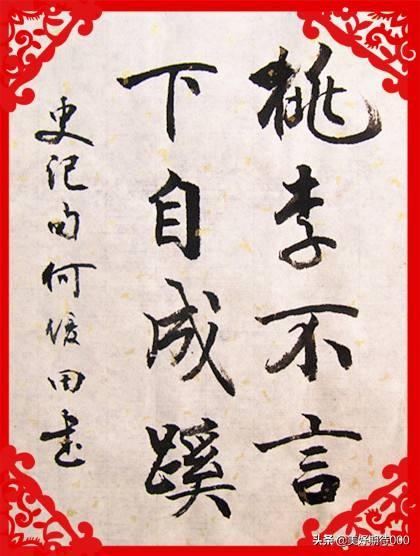 桃李不言
下自成蹊
史记句何俊田书
头条 @美好期待000